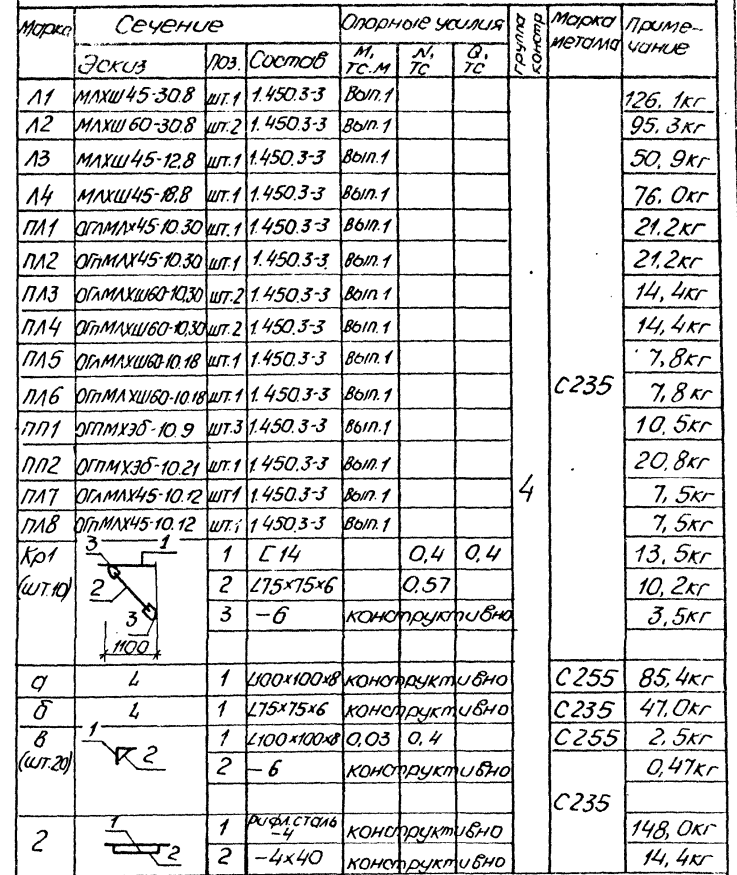 Марка Сечение Опорные усилия группа констр Марка металла Примечание
Эскиз поз. Состав М, тс.м N, тс Q, тс
Л1 МЛХШ45-30.8 шт.1 1.450.3-3 Вып.1 126,1кг
Л2 МЛХШ60-30.8 шт.2 1.450.3-3 Вып.1 95,3кг
Л3 МЛХШ45-12.8 шт.1 1.450.3-3 Вып.1 50,9кг
Л4 МЛХШ45-18.8 шт.1 1.450.3-3 Вып.1 76,0кг
ПЛ1 ОГлМЛХ45-10.30 шт.1 1.450.3-3 Вып.1 21.2кг
ПЛ2 ОГпМЛХ45-10.30 шт.1 1.450.3-3 Вып.1 21,2кг
ПЛ3 ОГлМЛХШ60-10.30 шт.2 1.450.3-3 Вып.1 14,4кг
ПЛ4 ОГпМЛХШ60-10.30 шт.2 1.450.3-3 Вып.1 14,4кг
ПЛ5 ОГлМЛХШ60-10.18 шт.1 1.450.3-3 Вып.1 7,8кг
ПЛ6 ОГпМЛХШ60-10.18 шт.1 1.450.3-3 Вып.1 С235 7,8кг
ПП1 ОГПМХЭБ-10.9 шт.3 1.450.3-3 Вып.1 10,5кг
ПП2 ОГПМХЭБ-10.21 шт.1 1.450.3-3 Вып.1 20,8кг
ПЛ7 ОГлМЛХ45-10.12 шт1 1.450.3-3 Вып.1 4 7,5кг
ПЛ8 ОГпМЛХ45-10.12 шт.1 1 450.3-3 Вып.1 7,5кг
Кр1 3 1 1 [14 0,4 0,4 13,5кг
(шт.10) 2 2 L75×75×6 0,57 10,2кг
3 3 –6 конструктивно 3,5кг
1100
а L 1 L100×100×8 конструктивно С255 85,4кг
б L 1 L75×75×6 конструктивно С235 47.0кг
в 1 1 L100×100×8 0,03 0,4 С255 2,5кг
(шт.20) 2 2 –6 конструктивно 0,47кг
С235
г 1 1 рифл.сталь –4 конструктивно 148,0кг
2 2 –4×40 конструктивно 14,4кг